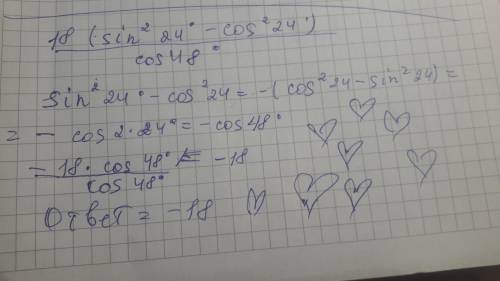 18 (sin² 24° - cos² 24°)
cos 48°
sin² 24° - cos² 24 = -( cos² 24 - sin² 24) =
= - cos 2·24° = - cos 48°
- 18 · cos 48° = -18
cos 48°
Ответ = -18